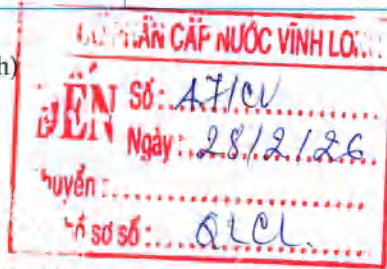 h)
PHẦN CẤP NƯỚC VĨNH LO
ĐẾN Số: A7/CV
Ngày: 28/2/26
huyển:
hồ sơ số: QLCL.